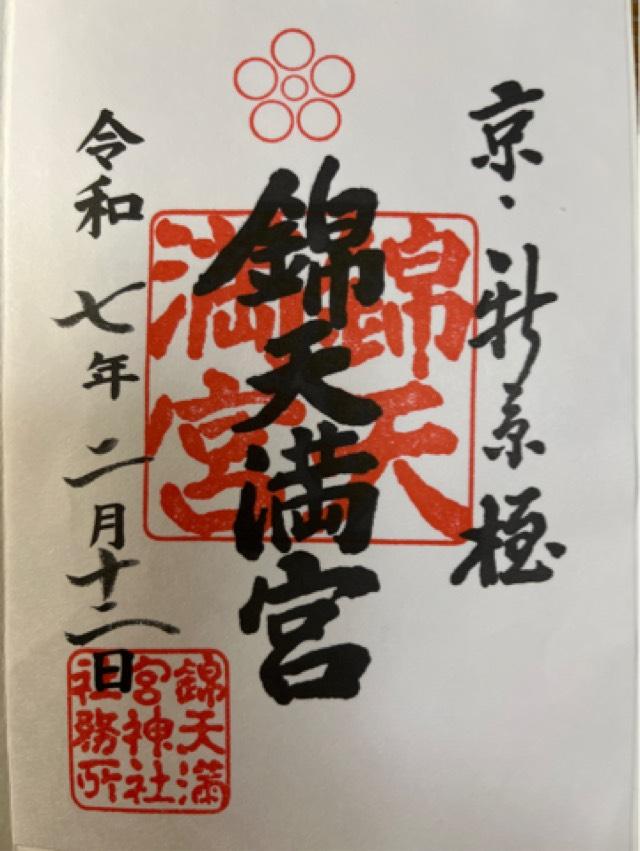 京・新京極
錦天満宮
錦天
満宮
令和七年二月十二日
錦天満
宮神社
社務所